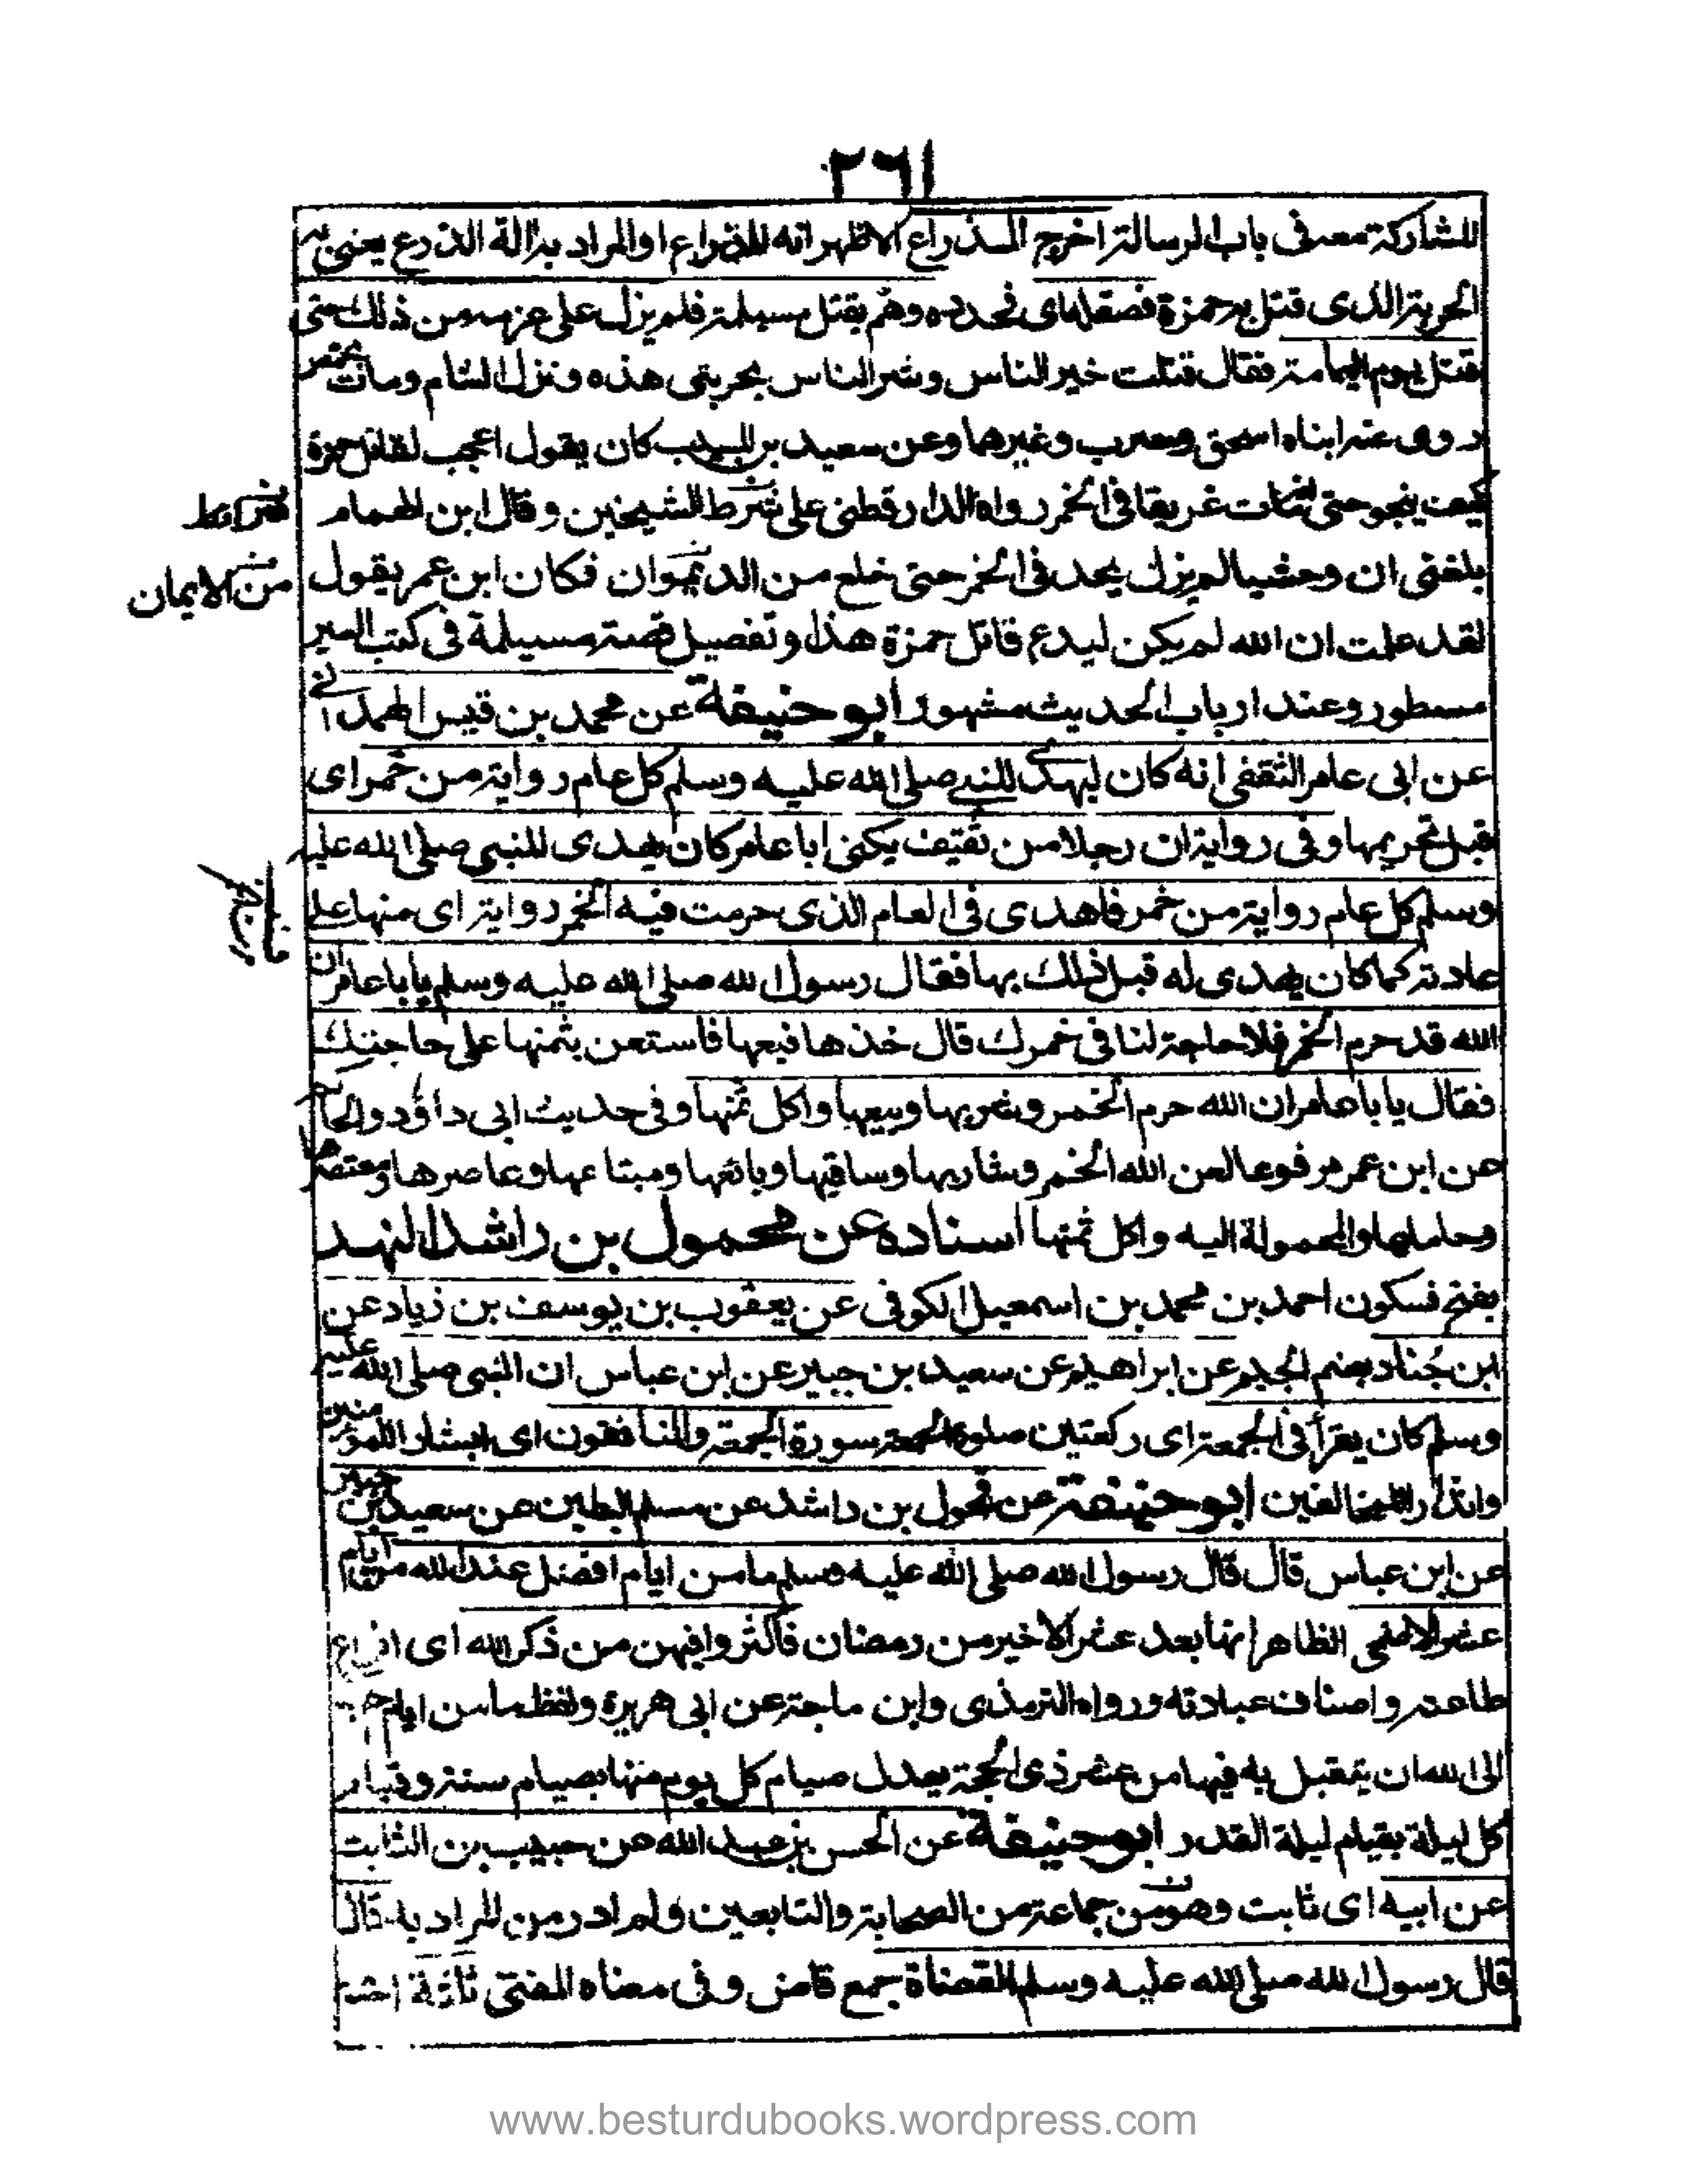 ٢٦١
للمشاركة معه فى باب الرسالة اخرج المذراع الاظهر انه للذراع او المراد به آلة الذرع يعنى به
الحربة الذى قتل به حمزة فصقلها اى فحدده وهم بقتل مسيلمة فلم يزل على عزمه من ذلك حتى
قتل يوم اليمامة فقال قتلت خير الناس وشر الناس بحربتى هذه ونزل الشام ومات بحمص
روى عنه ابناه اسحق وحرب وغيرهما وعن سعيد بن المسيب كان يقول اعجب لقاتل حمزة
كيف ينجو حتى مات غريقا فى الخمر رواه الدارقطنى على شرط الشيخين وقال ابن الهمام
شرائط
بلغنى ان وحشيا لم يزل يحد فى الخمر حتى خلع من الديوان فكان ابن عمر يقول
من الايمان
لقد علمت ان الله لم يكن ليدع قاتل حمزة هذا وتفصيل قصة مسيلمة فى كتب السير
مسطور وعند ارباب الحديث مشهور ابو حنيفة عن محمد بن قيس الهمدانى
عن ابى عامر الثقفى انه كان يهدى للنبى صلى الله عليه وسلم كل عام رواية من خمر اى
قبل تحريمها وفى رواية ان رجلا من ثقيف يكنى ابا عامر كان يهدى للنبى صلى الله عليه
وسلم كل عام رواية من خمر فاهدى فى العام الذى حرمت فيه الخمر رواية اى منها على
عادته كما كان يهدى له قبل ذلك بها فقال رسول الله صلى الله عليه وسلم يا باعامر ان
الله قد حرم الخمر فلا حاجة لنا فى خمرك قال خذها فبعها فاستعن بثمنها على حاجتك
فقال يا باعامر ان الله حرم الخمر وشربها وبيعها واكل ثمنها وفى حديث ابى داؤد والحاكم
عن ابن عمر مرفوعا لعن الله الخمر وشاربها وساقيها وبائعها ومبتاعها وعاصرها ومعتصرها
وحاملها والمحمولة اليه واكل ثمنها اسناده عن محمول بن راشد النهد
بفتح فسكون احمد بن محمد بن اسمعيل الكوفى عن يعقوب بن يوسف بن زياد عن
ابن جناد بضم الجيم عن ابراهيم عن سعيد بن جبير عن ابن عباس ان النبى صلى الله عليه
وسلم كان يقرأ فى الجمعة اى ركعتين صلوة الجمعة سورة الجمعة والمنافقون اى ابشار اللمؤمنين
وانذار اللمخالفين ابو حنيفة عن محول بن راشد عن مسلم البطين عن سعيد بن جبير
عن ابن عباس قال قال رسول الله صلى الله عليه وسلم ما من ايام افضل عند الله من ايام
عشر الاضحى الظاهر انها بعد عشر الاخير من رمضان فاكثروا فيهن من ذكر الله اى انواع
طاعته واصناف عبادته ورواه الترمذى وابن ماجة عن ابى هريرة ولفظ ما من ايام
الى الله ان يتعبد له فيها من عشر ذى الحجة يعدل صيام كل يوم منها بصيام سنة وقيام
كل ليلة بقيام ليلة القدر ابو حنيفة عن الحسن بن عبد الله عن حبيب بن الثابت
عن ابيه اى ثابت وهو من جماعة من الصحابة والتابعين ولم ادر من المراد به قال
قال رسول الله صلى الله عليه وسلم القضاة جمع قاض وفى معناه المفتى ثلاثة
www.besturdubooks.wordpress.com